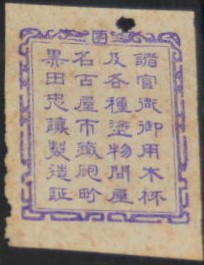 諸官衙御用木杯
及各種塗物問屋
名古屋市鐵砲町
栗田忠讓製造証